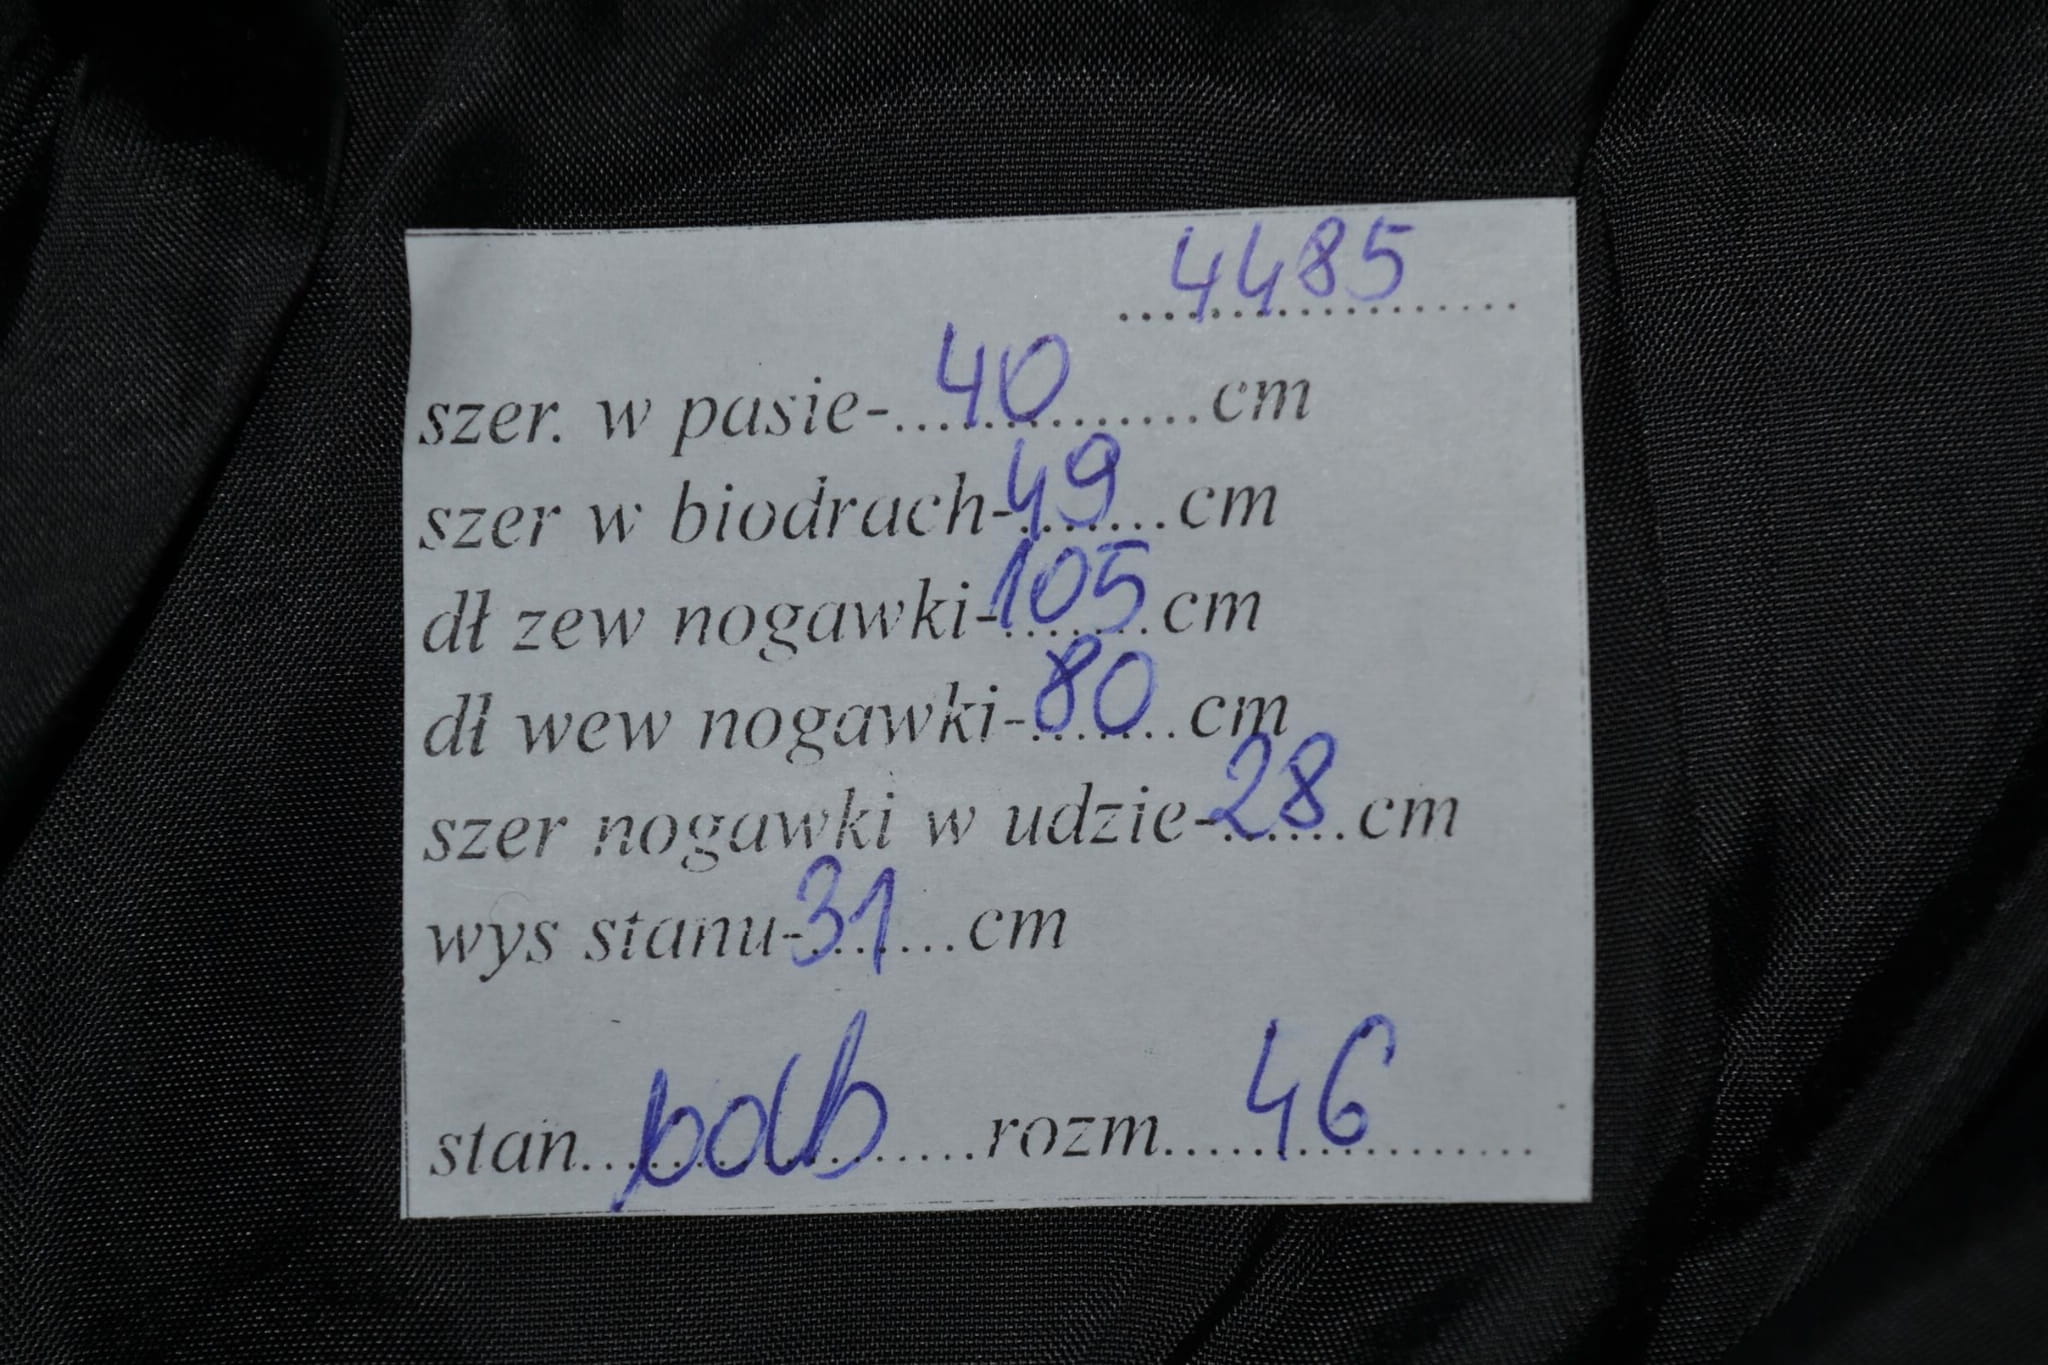 4485
szer. w pasie-...40...cm
szer w biodrach-49...cm
dł zew nogawki-105 cm
dł wew nogawki-80...cm
szer nogawki w udzie-28 cm
wys stanu-31...cm
stan... ...rozm...46...